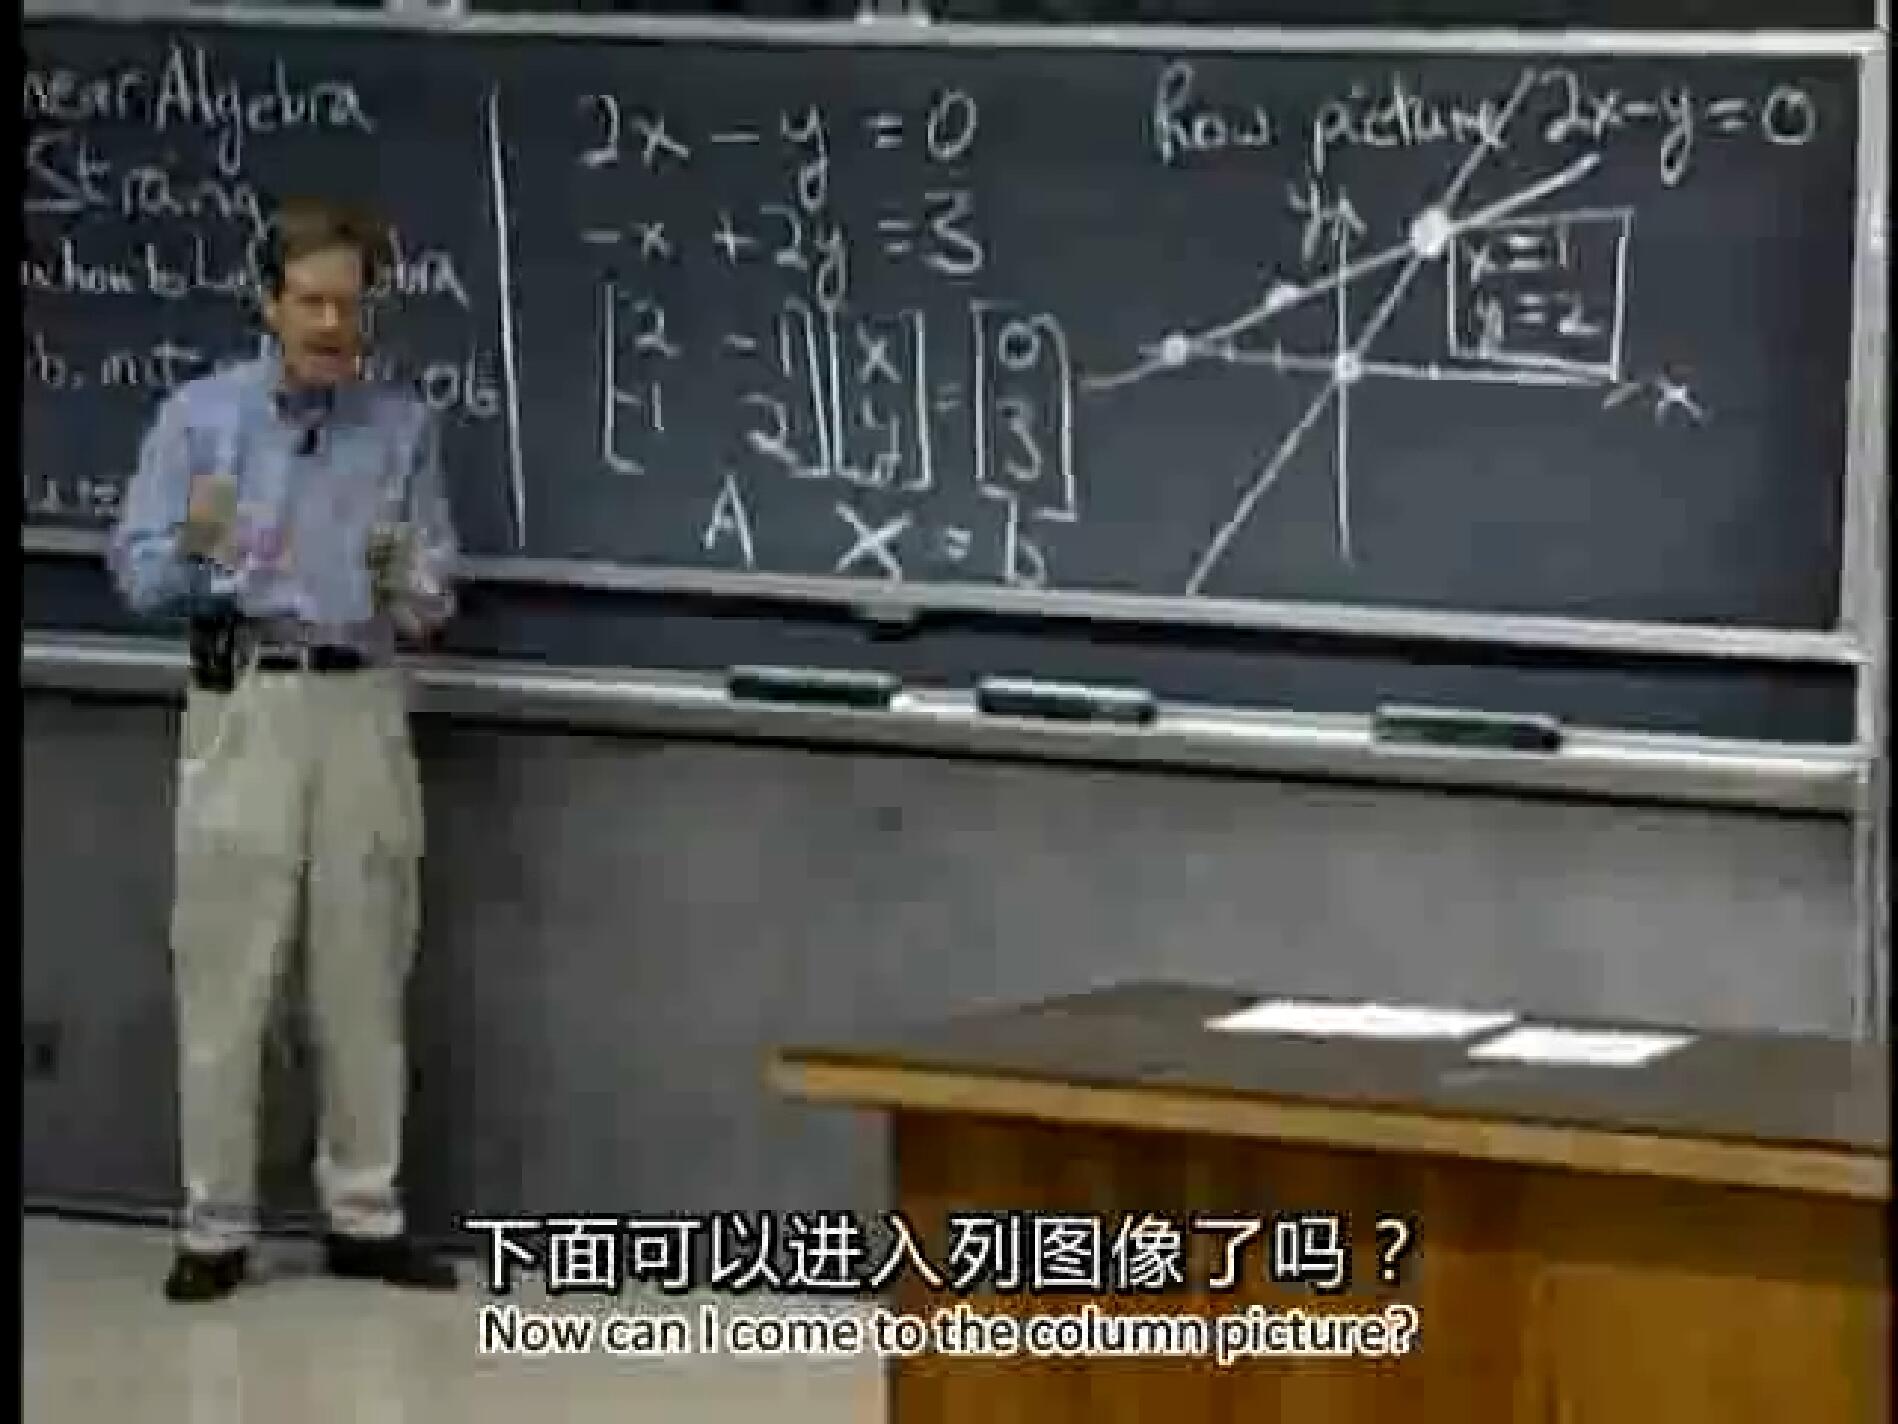 near Algebra
Strang
06
2x - y = 0
-x + 2y = 3
[2 -1] [x] = [0]
[-1 2] [y] [3]
A X = b
Row picture 2x-y=0
y
x=1
y=2
x
下面可以进入列图像了吗？
Now can I come to the column picture?